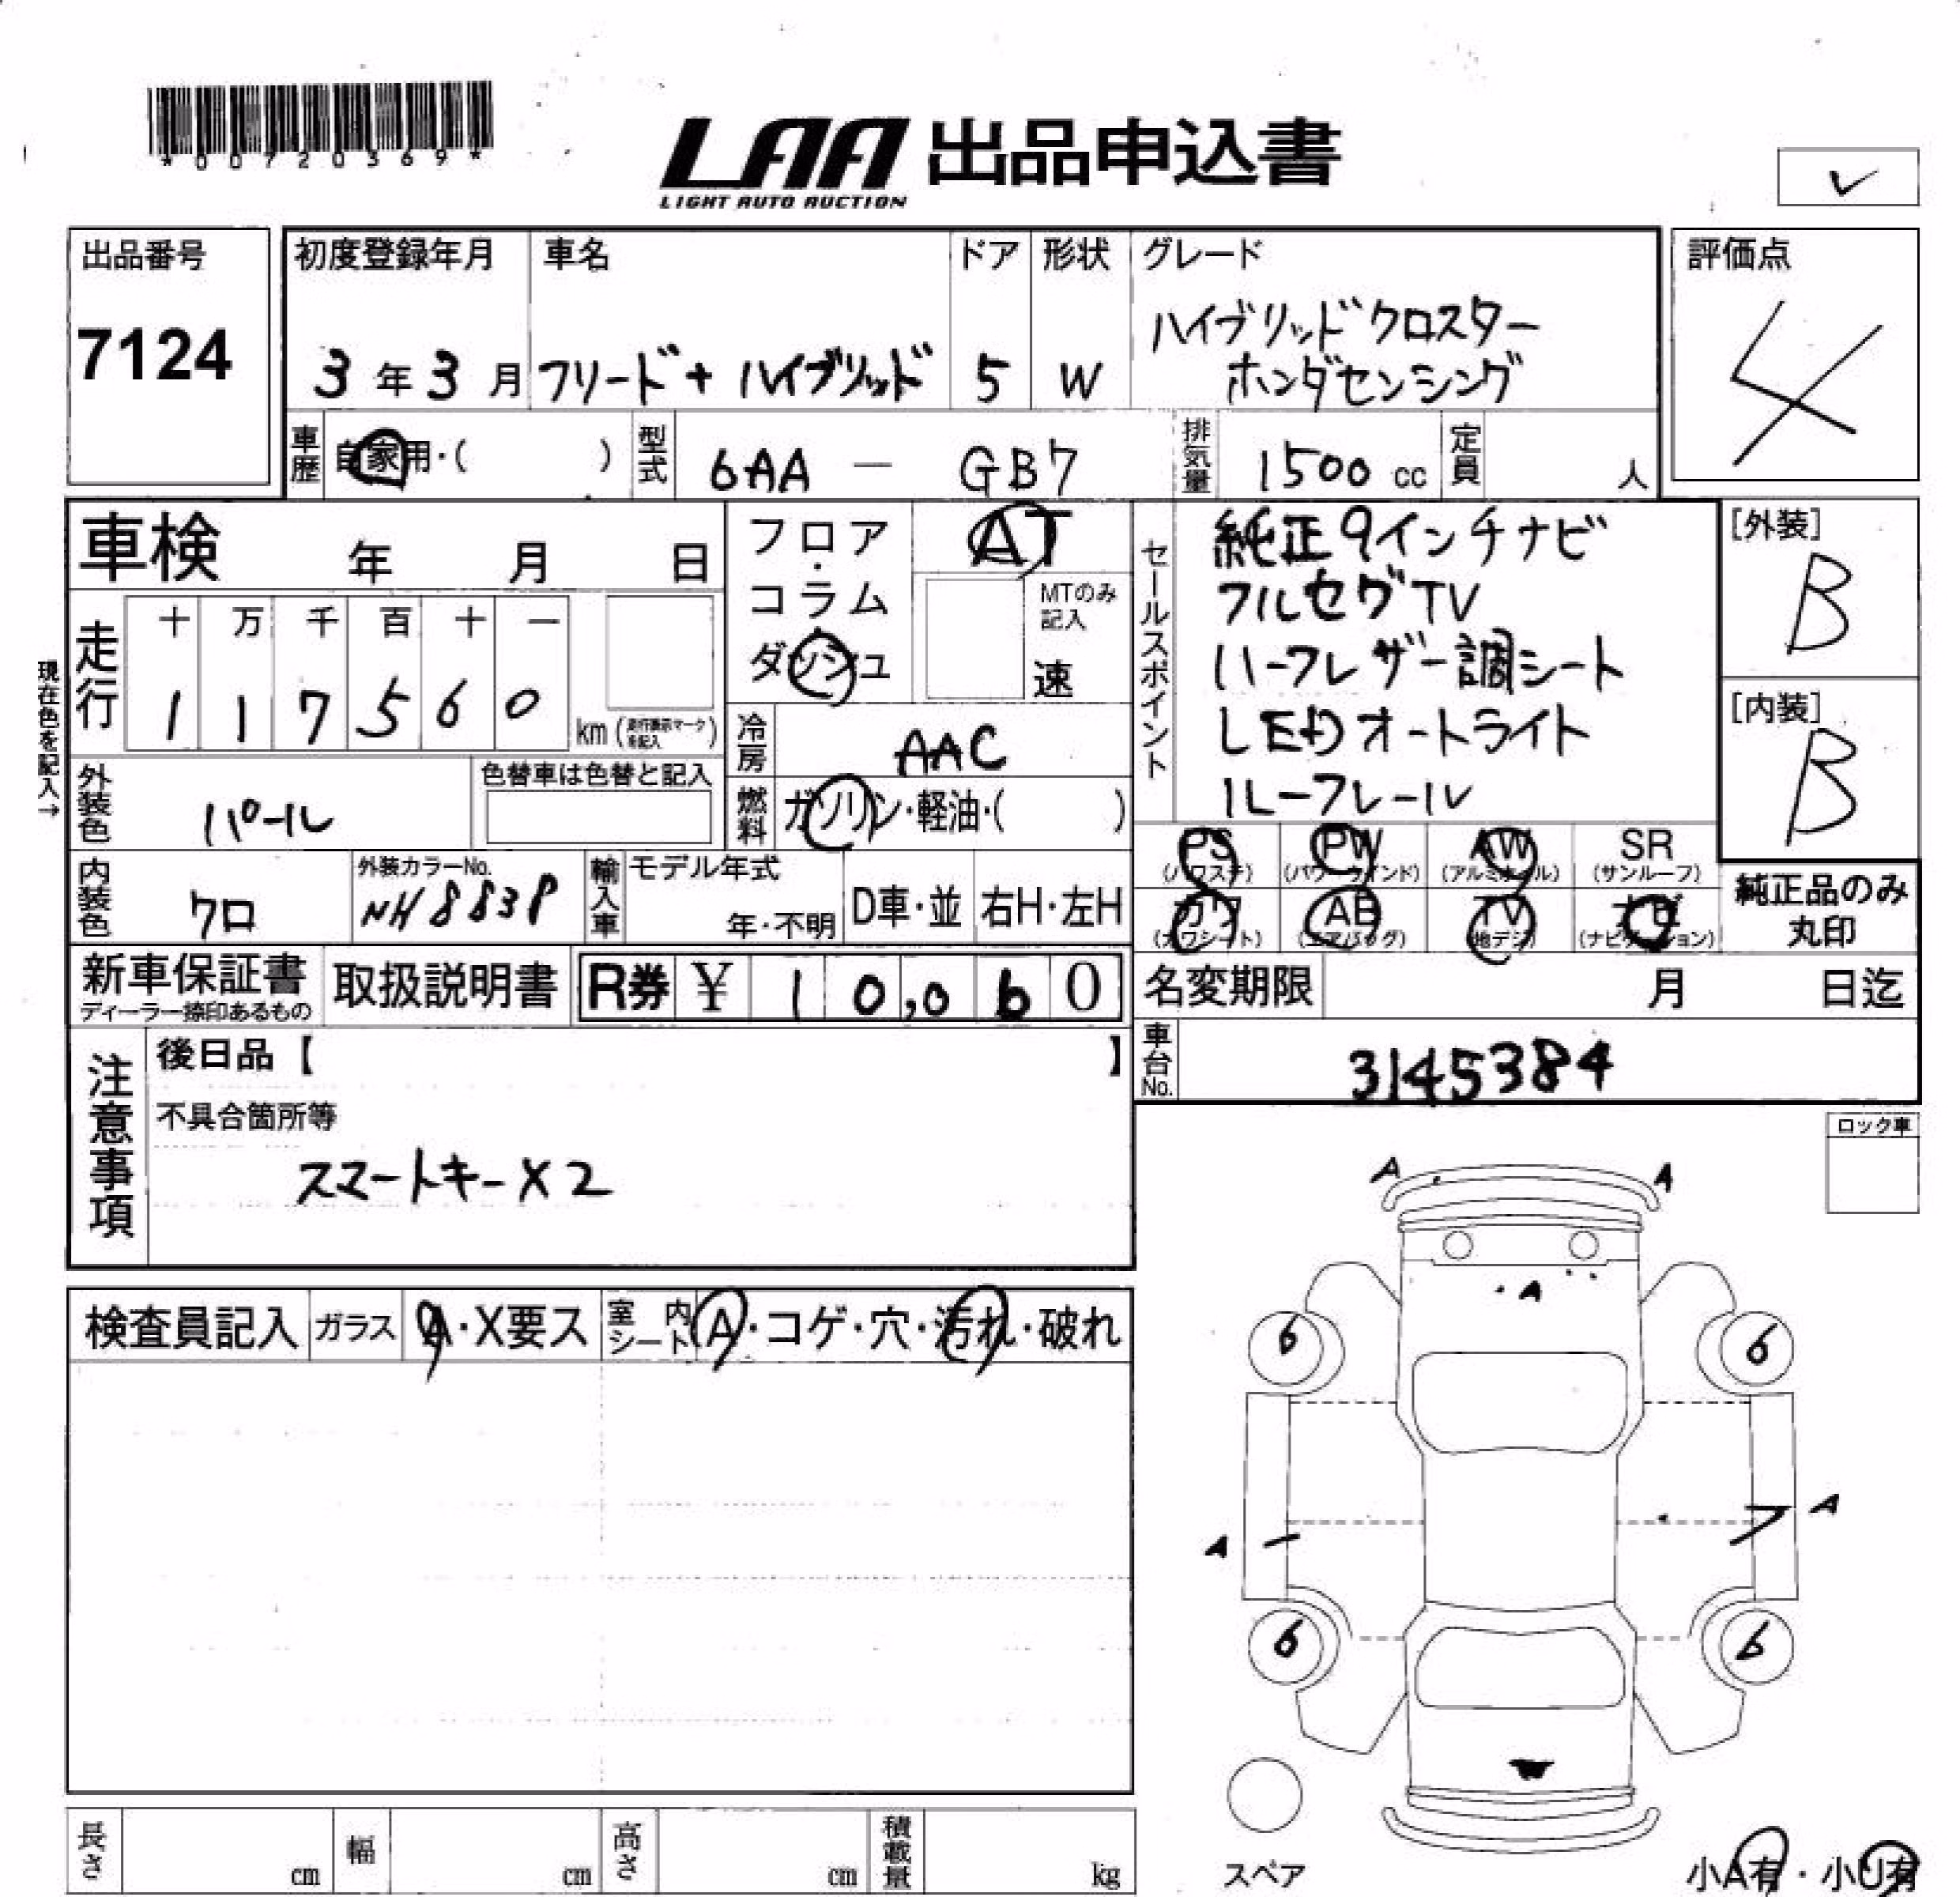 *00720369*
LAA 出品申込書
LIGHT AUTO AUCTION
✓
出品番号
7124
初度登録年月
3年3月
車名
フリード+ ハイブリッド
ドア
5
形状
W
グレード
ハイブリッドクロスター
ホンダセンシング
評価点
4
車歴
自家用・( )
型式
6AA — GB7
排気量
1500 cc
定員
人
車検 年 月 日
現在色を記入→
走行
十 万 千 百 十 一
1 1 7 5 6 0
km (走行表示マークを記入)
フロア・コラム・ダッシュ
AT
MTのみ記入
速
冷房
AAC
燃料
ガソリン・軽油・( )
セールスポイント
純正9インチナビ
フルセグTV
ハーフレザー調シート
LEDオートライト
ルーフレール
[外装]
B
[内装]
B
外装色
パール
色替車は色替と記入
内装色
クロ
外装カラーNo.
NH883P
輸入車
モデル年式
年・不明
D車・並
右H・左H
PS (パワステ)
PW (パワーウインド)
AW (アルミホイル)
SR (サンルーフ)
カワ (カワシート)
AB (エアバッグ)
TV (地デジ)
ナビ (ナビゲーション)
純正品のみ丸印
新車保証書
ディーラー捺印あるもの
取扱説明書
R券 ¥ 10,060
名変期限 月 日迄
車台No.
3145384
注意事項
後日品【 】
不具合箇所等
スマートキー×2
ロック車
検査員記入
ガラス
A・X要ス
室内シート
A・コゲ・穴・汚れ・破れ
A A
A
6 6
A
A
6 6
スペア
小A有・小U有
長さ cm
幅 cm
高さ cm
積載量 kg